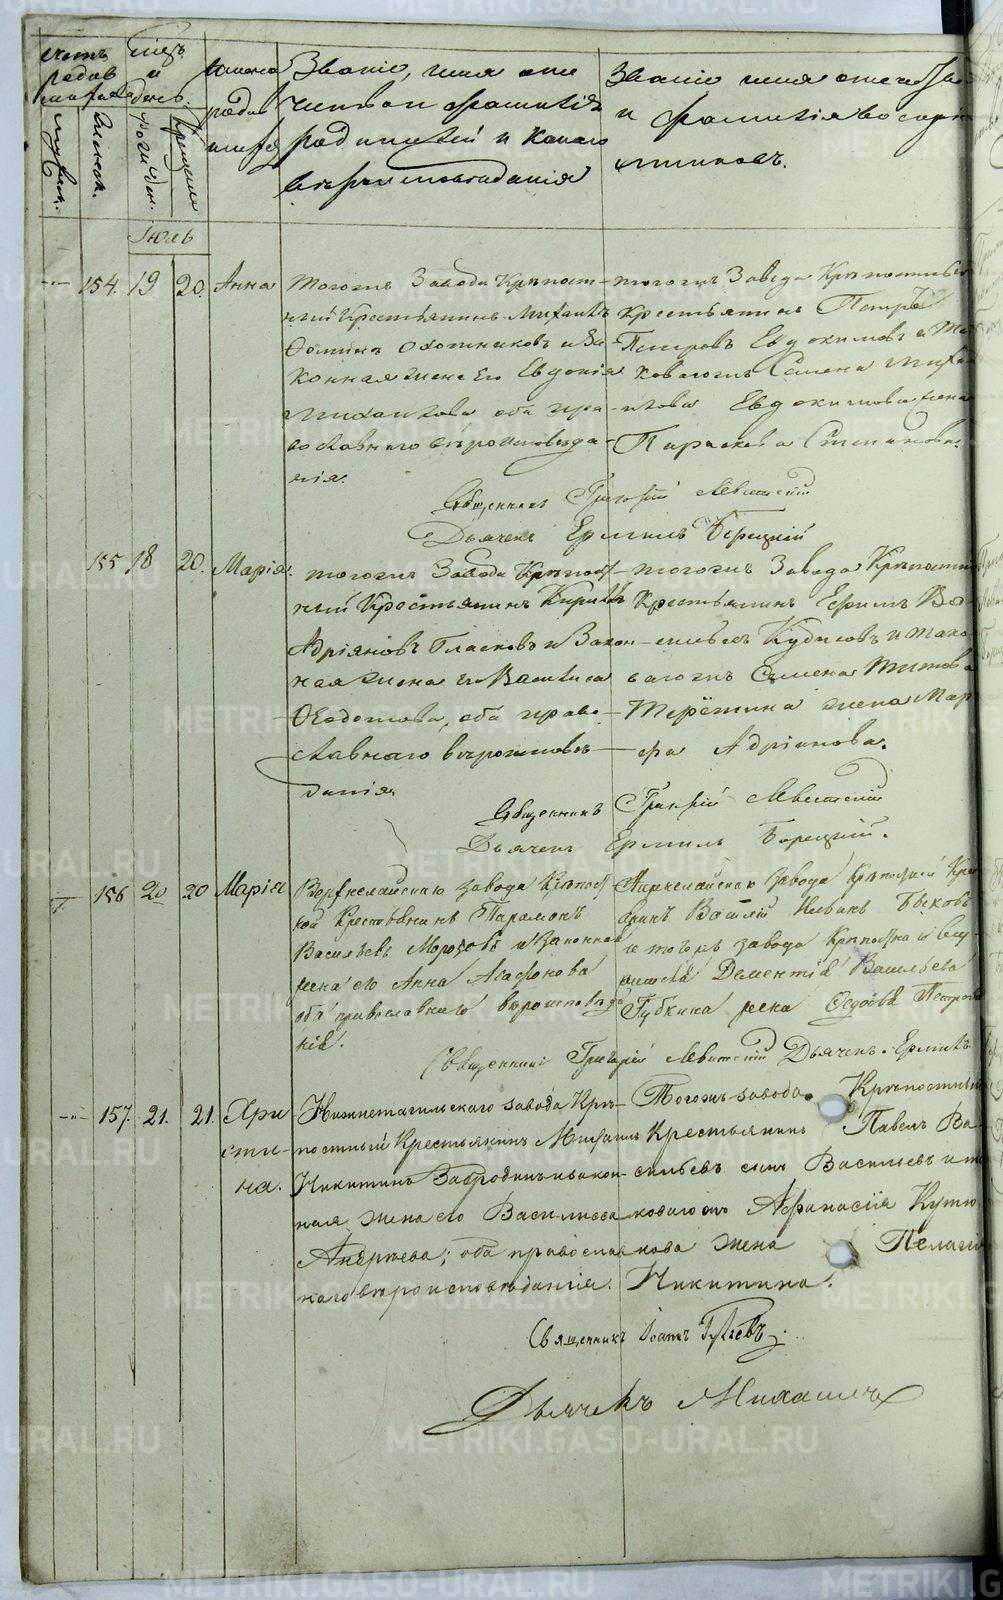 Счетъ родив
шихся
мужеск. женск.
Мѣсяцъ и день
рожден. крещенія
Имена
родив
шихся
Званіе, имя отче
ство и фамилія
родителей и какого
вѣроисповѣданія
Званіе имя отечество
и фамилія воспріе
мниковъ.
Іюль
154. 19 20. Анна
тогожъ Завода Крѣпост-
ный Крестьянинъ Михаилъ
Ѳоминъ Охотниковъ и За
конная жена Его Евдокія
Михаилова оба пра
вославнаго вѣроисповѣда-
нія.
тогожъ Завода Крѣпостный
Крестьянинъ Петръ
Петровъ Евдокимовъ и та
коваго жъ Семена Михаи
лова Евдокимова жена
Параскева Степанова.
Священникъ Григорій Левитскій
Дьячекъ Ермилъ Борецкій
155 18 20. Марія.
тогожъ Завода Крѣпост-
ный Крестьянинъ Кирилъ
Адріяновъ Глазковъ и Закон-
ная жена его Васса
Ѳедотова, оба право-
славнаго вѣроисповѣ-
данія.
тогожъ Завода Крѣпостный
Крестьянинъ Ефимъ Ва-
сильевъ и тако
ваго жъ Семена Титова
жена Мар
фа Адріанова.
Священникъ Григорій Левитскій
Дьячекъ Ермилъ Борецкій.
156 20 20 Марія
Верхнелайскаго завода Крѣпост
ной Крестьянинъ Парамонъ
Васильевъ Морозовъ и Законная
жена его Анна Агафонова
оба православнаго вѣроисповѣда
нія.
завода Крѣпостной Крес
Василій Быковъ
и тогожъ завода
Дементія Васильева
Губкина жена Петрова
Священникъ Григорій Левитскій Дьячекъ Ермилъ
157. 21. 21. Хри
сти-
на.
Нижнетагильскаго завода Крѣ-
постный Крестьянинъ Михаилъ
Никитинъ Забродинъ и закон-
ная жена его Василиса
Андреева; оба православ
наго вѣроисповѣданія.
Тогожъ завода Крѣпостный
Крестьянинъ Павелъ Ва-
сильевъ сынъ Васильевъ и та
коваго жъ Афанасія Кутю
кова жена Пелагія
Никитина.
Священникъ Іоаннъ
Дьячекъ Михаилъ
METRIKI.GASO-URAL.RU